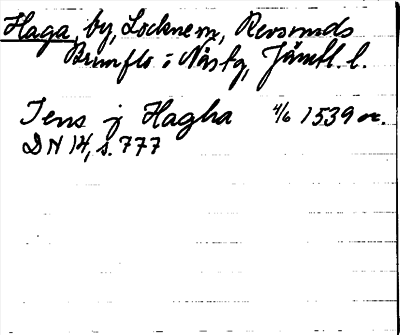 Haga, by, Lockne sn, Revsunds
Brunflo i Näs tg, Jämtl. l.
Jens j Hagha 4/6 1539 or.
DN 14, s. 777